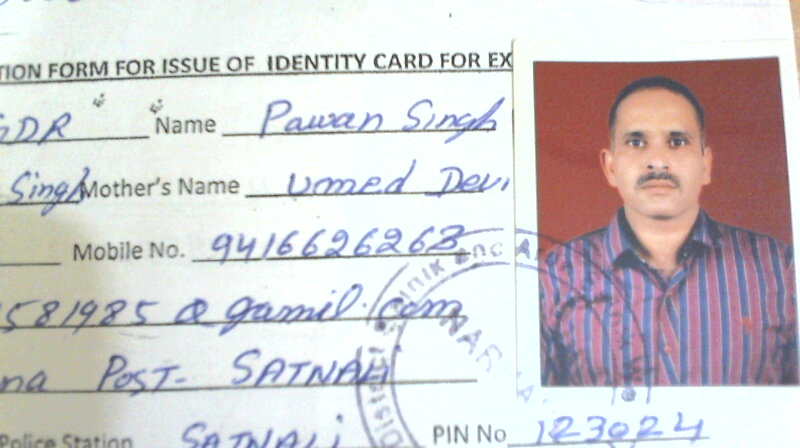 TION FORM FOR ISSUE OF IDENTITY CARD FOR EX
GDR Name Pawan Singh
Singh Mother's Name Umed Devi
Mobile No. 9416626263
581985@gamil.com
na Post- SATNALI
Police Station SATNALi PIN No 123024
District Sainik and
NAR